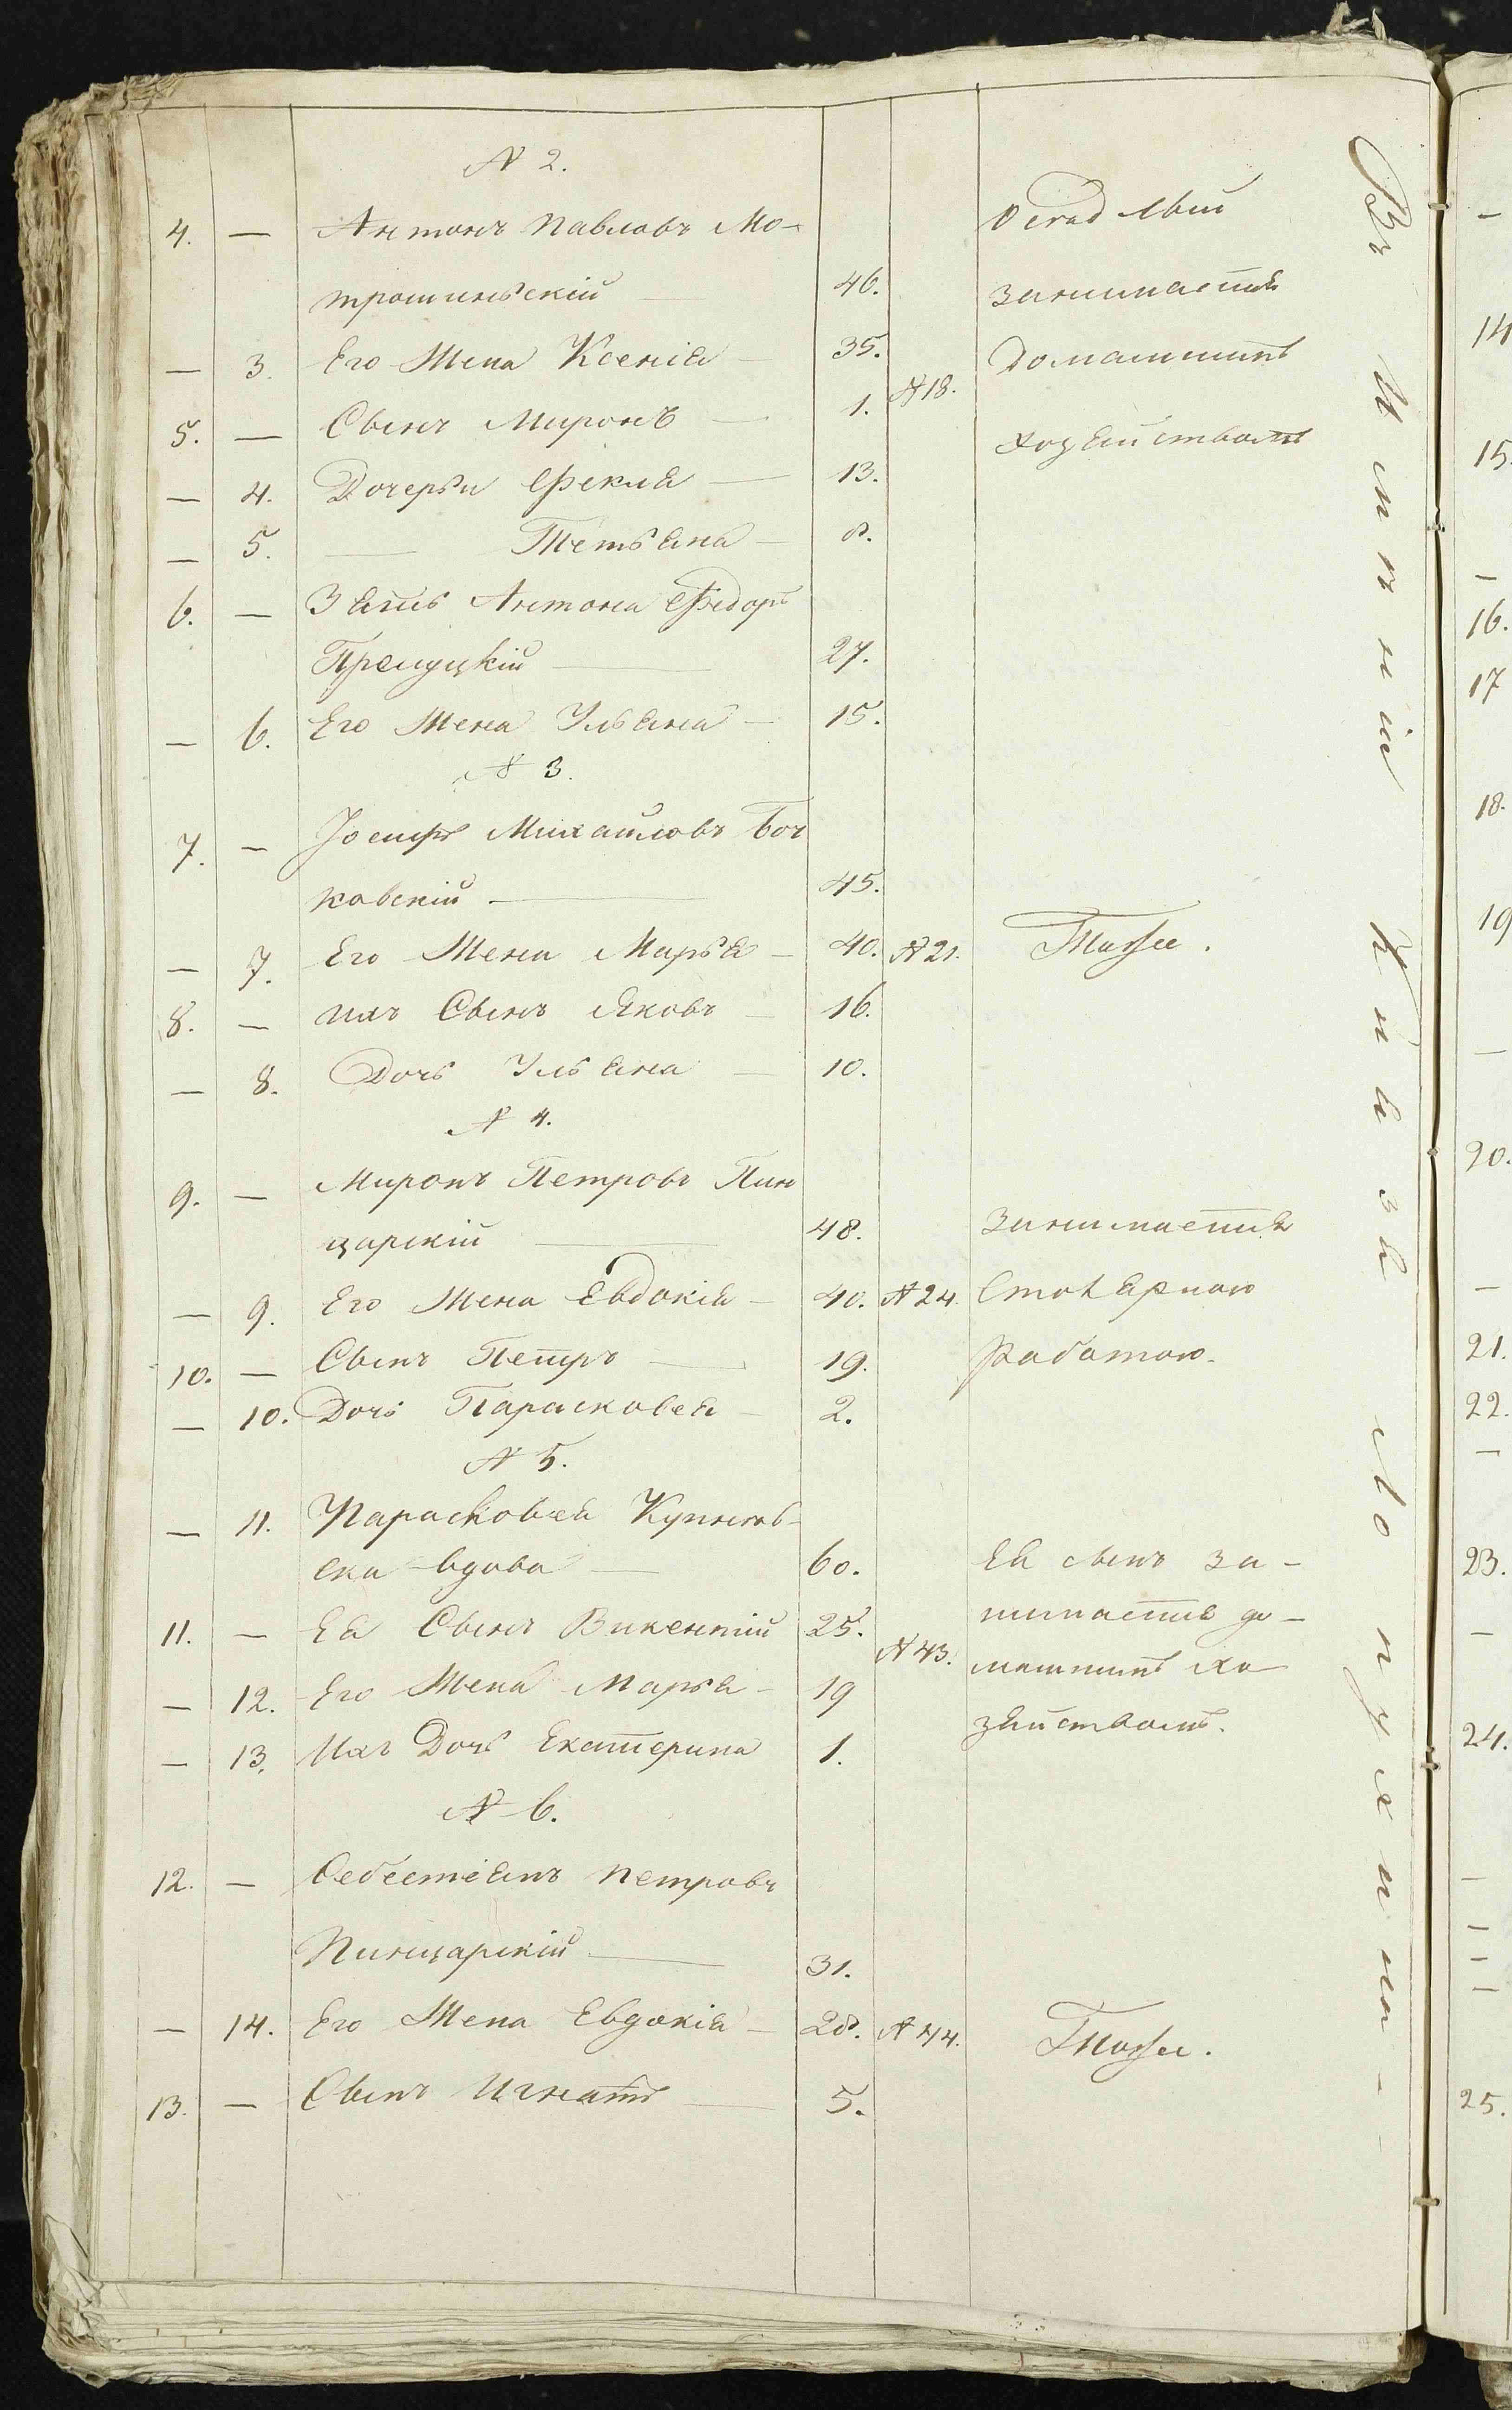 N 2.
4. — Антонъ Павловъ Мо-
трошинскій — 46.
— 3. Его Жена Ксенія — 35.
5. — Сынъ Миронъ — 1. N 18.
— 4. Дочерьи Фекла — 13.
— 5. — Тетьяна — 8.
6. — Зять Антона Федоръ
27.
— 6. Его Жена Ульяна — 15.
Оседлый
занимается
Домашнимъ
хозяйствомъ
N 3.
7. — Іосифъ Михайловъ Боч
ковскій — 45.
— 7. Его Жена Марья — 40. N 21. Тоже.
8. — ихъ Сынъ Яковъ — 16.
— 8. Дочь Ульяна — 10.
N 4.
9. — Миронъ Петровъ Пин
царскій — 48. занимается
— 9. Его Жена Евдокія — 40. N 24. Столярною
10. — Сынъ Петръ — 19. работою.
— 10. Дочь Парасковея — 2.
N 5.
— 11. Парасковея
ска вдова — 60. Ея сынъ за-
11. — Ея Сынъ Викентій 25. N 43. нимается до-
— 12. Его Жена Марья — 19 машнимъ хо
— 13. Ихъ Дочь Екатерина 1. зяйствомъ.
N 6.
12. — Себестіянъ Петровъ
Пинцарскій — 31.
— 14. Его Жена Евдокія — 28. N 44. Тоже.
13. — Сынъ Игнатъ — 5.
Въ Имѣніи Князя Лопухина -
—
14
15.
—
16.
17
18.
19
—
20.
—
21.
22.
—
23.
—
24.
—
—
—
—
25.